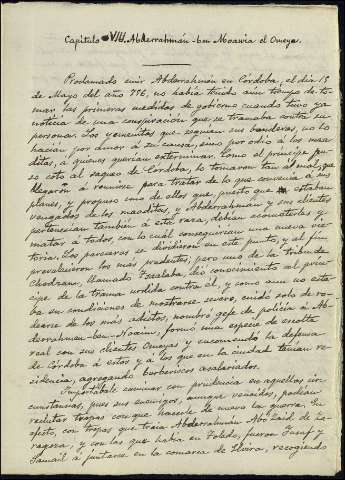 Capítulo VIII. Abderrahmán-ben Moavia el Omeya.
Proclamado emir Abderrahmán en Córdoba, el día 15
de Mayo del año 756, no había tenido aún tiempo de to-
mar las primeras medidas de gobierno cuando tuvo ya
noticia de una conspiración que se tramaba contra su
persona. Los yemenitas que seguían sus banderas, no lo
hacían por amor a su causa, sino por odio á los maa-
ditas, á quienes querían exterminar. Como el príncipe pu-
so coto al saqueo de Córdoba, lo tomaron tan á mal, que
llegaron á reunirse para tratar de lo que convenía á sus
planes, y propuso uno de ellos que, puesto que estaban
vengados de los maaditas, y Abderrahmán y sus clientes
pertenecían también á esta raza, debían acometerlos y
matar á todos, con lo cuál conseguirían una nueva vic-
toria. Los pareceres se dividieron en este punto, y al fin
prevalecieron los más prudentes, pero uno de la tribu de
Chodzam, llamado Tsalaba, dió conocimiento al prín-
cipe de la trama urdida contra él, y como aún no esta-
ba en condiciones de mostrarse severo, cuidó solo de ro-
dearse de los más adictos, nombró gefe de policía á Ab-
derrahmen-ben-Noaim, formó una especie de escolta
real con sus clientes Omeyas y encomendó la defensa
de Córdoba á estos y á los que en la ciudad tenían re-
sidencia, agregando berberiscos asalariados.
Importábale caminar con prudencia en aquellas cir-
cunstancias, pues sus enemigos, aunque vencidos, podían
reclutar tropas con que hacerle de nuevo la guerra. En
efecto, con tropas que traía Abderrahmán Abo Zaid de Za-
ragoza, y con las que había en Toledo, fueron Jusuf y
Samail á juntarse en la comarca de Elvira, recogiendo